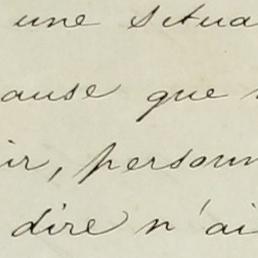 une situa
ause que
ir, personn
dire n'ai